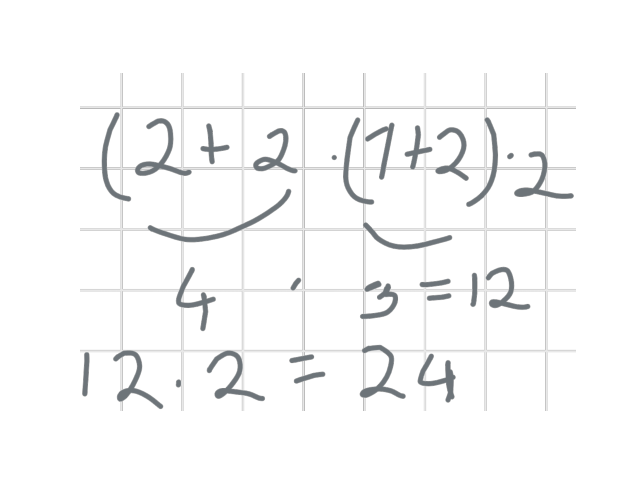 (2+2 ·(1+2)·2
4 · 3 = 12
12·2 = 24